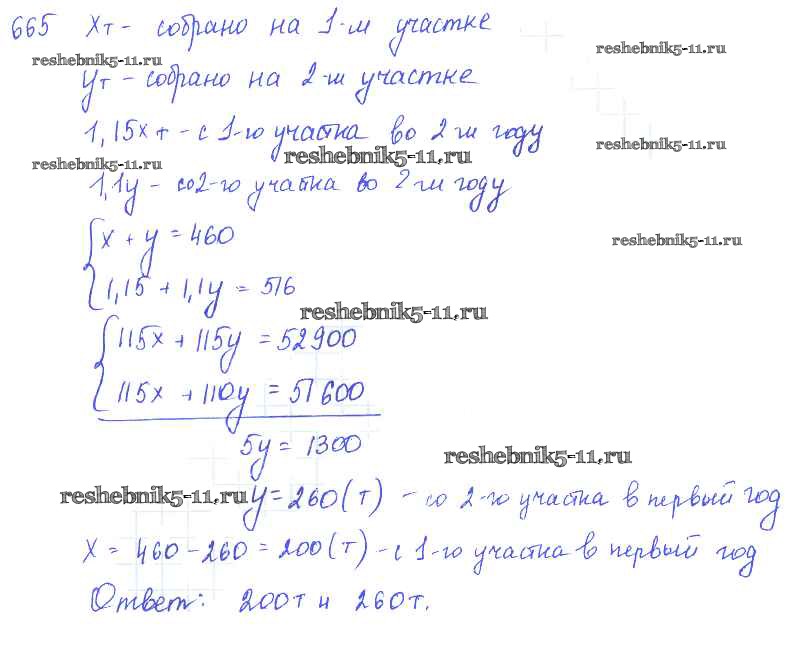 665 Xт - собрано на 1-м участке
reshebnik5-11.ru
reshebnik5-11.ru
Yт - собрано на 2-м участке
1,15x т - с 1-го участка во 2-м году
reshebnik5-11.ru
reshebnik5-11.ru
reshebnik5-11.ru
1,1y - со 2-го участка во 2-м году
x + y = 460
reshebnik5-11.ru
1,15 + 1,1y = 516
reshebnik5-11.ru
115x + 115y = 52900
115x + 110y = 51600
5y = 1300
reshebnik5-11.ru
reshebnik5-11.ru
y = 260 (т) - со 2-го участка в первый год
x = 460 - 260 = 200 (т) - с 1-го участка в первый год
Ответ: 200т и 260т.